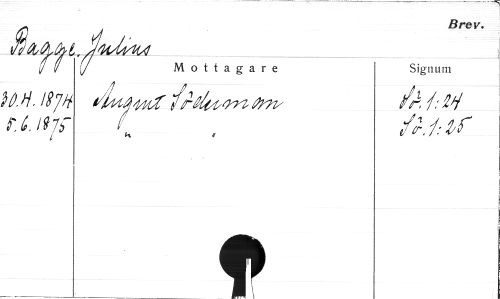 Brev.
Bagge, Julius
Mottagare Signum
30.4.1874 August Söderman Sö. 1:24
5.6.1875 " " Sö. 1:25